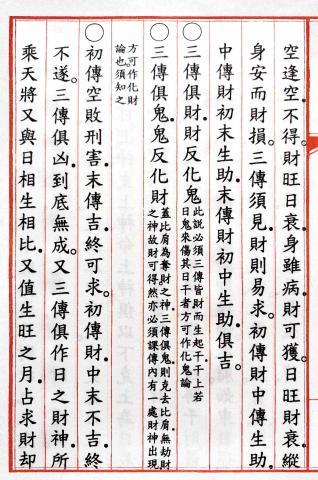 空逢空。不得。財旺日衰。身雖病。財可獲。日旺財衰。縱
身安而財損。三傳須見。財則易求。初傳財中傳生助。
中傳財初末生助。末傳財初中生助。俱吉。
○三傳俱財。財反化鬼。此說必須三傳皆財而生起干上若
日鬼來傷其日干者方可作化鬼論
○三傳俱鬼。鬼反化財。蓋比肩為奪財之神。三傳俱鬼。則克去比肩。無劫財
之神。故財可得。然亦必須課傳內有一處財神出現
方可作化財
論也。須知之
○初傳空敗刑害。末傳吉。終可求。初傳財。中末不吉。終
不遂。三傳俱凶。到底無成。又三傳俱作日之財神。所
乘天將又與日相生相比。又值生旺之月。占求財却